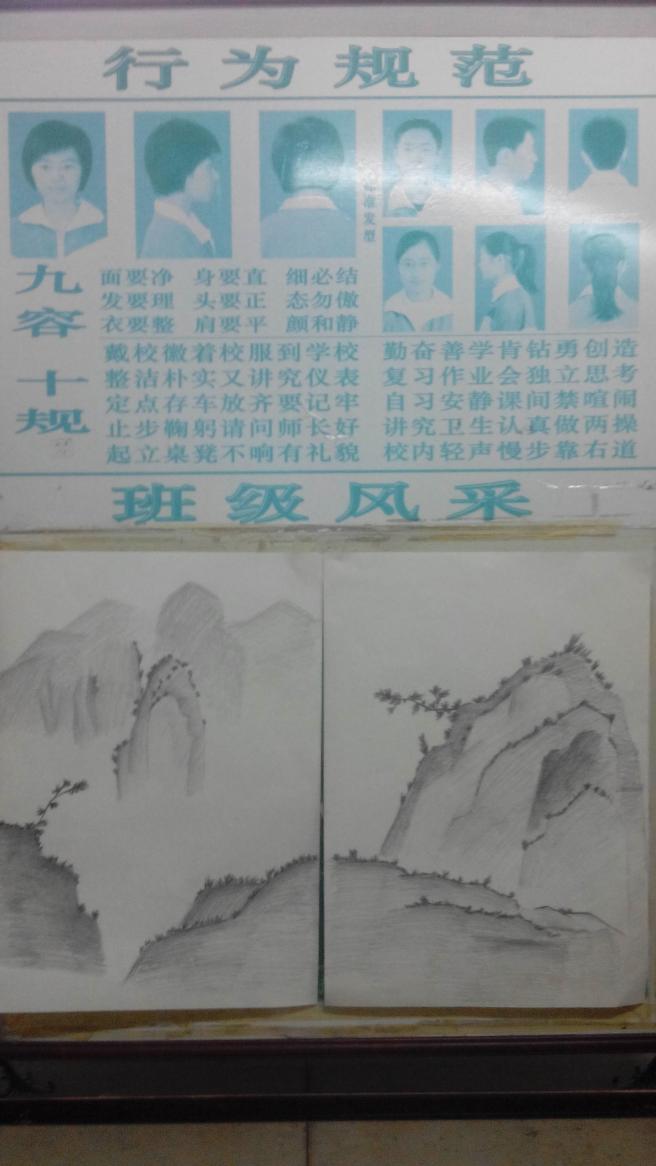 行为规范
标准发型
九容
面要净 身要直 细必结
发要理 头要正 态勿傲
衣要整 肩要平 颜和静
十规
戴校徽着校服到学校
整洁朴实又讲究仪表
定点存车放齐要记牢
止步鞠躬请问师长好
起立桌凳不响有礼貌
勤奋善学肯钻勇创造
复习作业会独立思考
自习安静课间禁喧闹
讲究卫生认真做两操
校内轻声慢步靠右道
班级风采